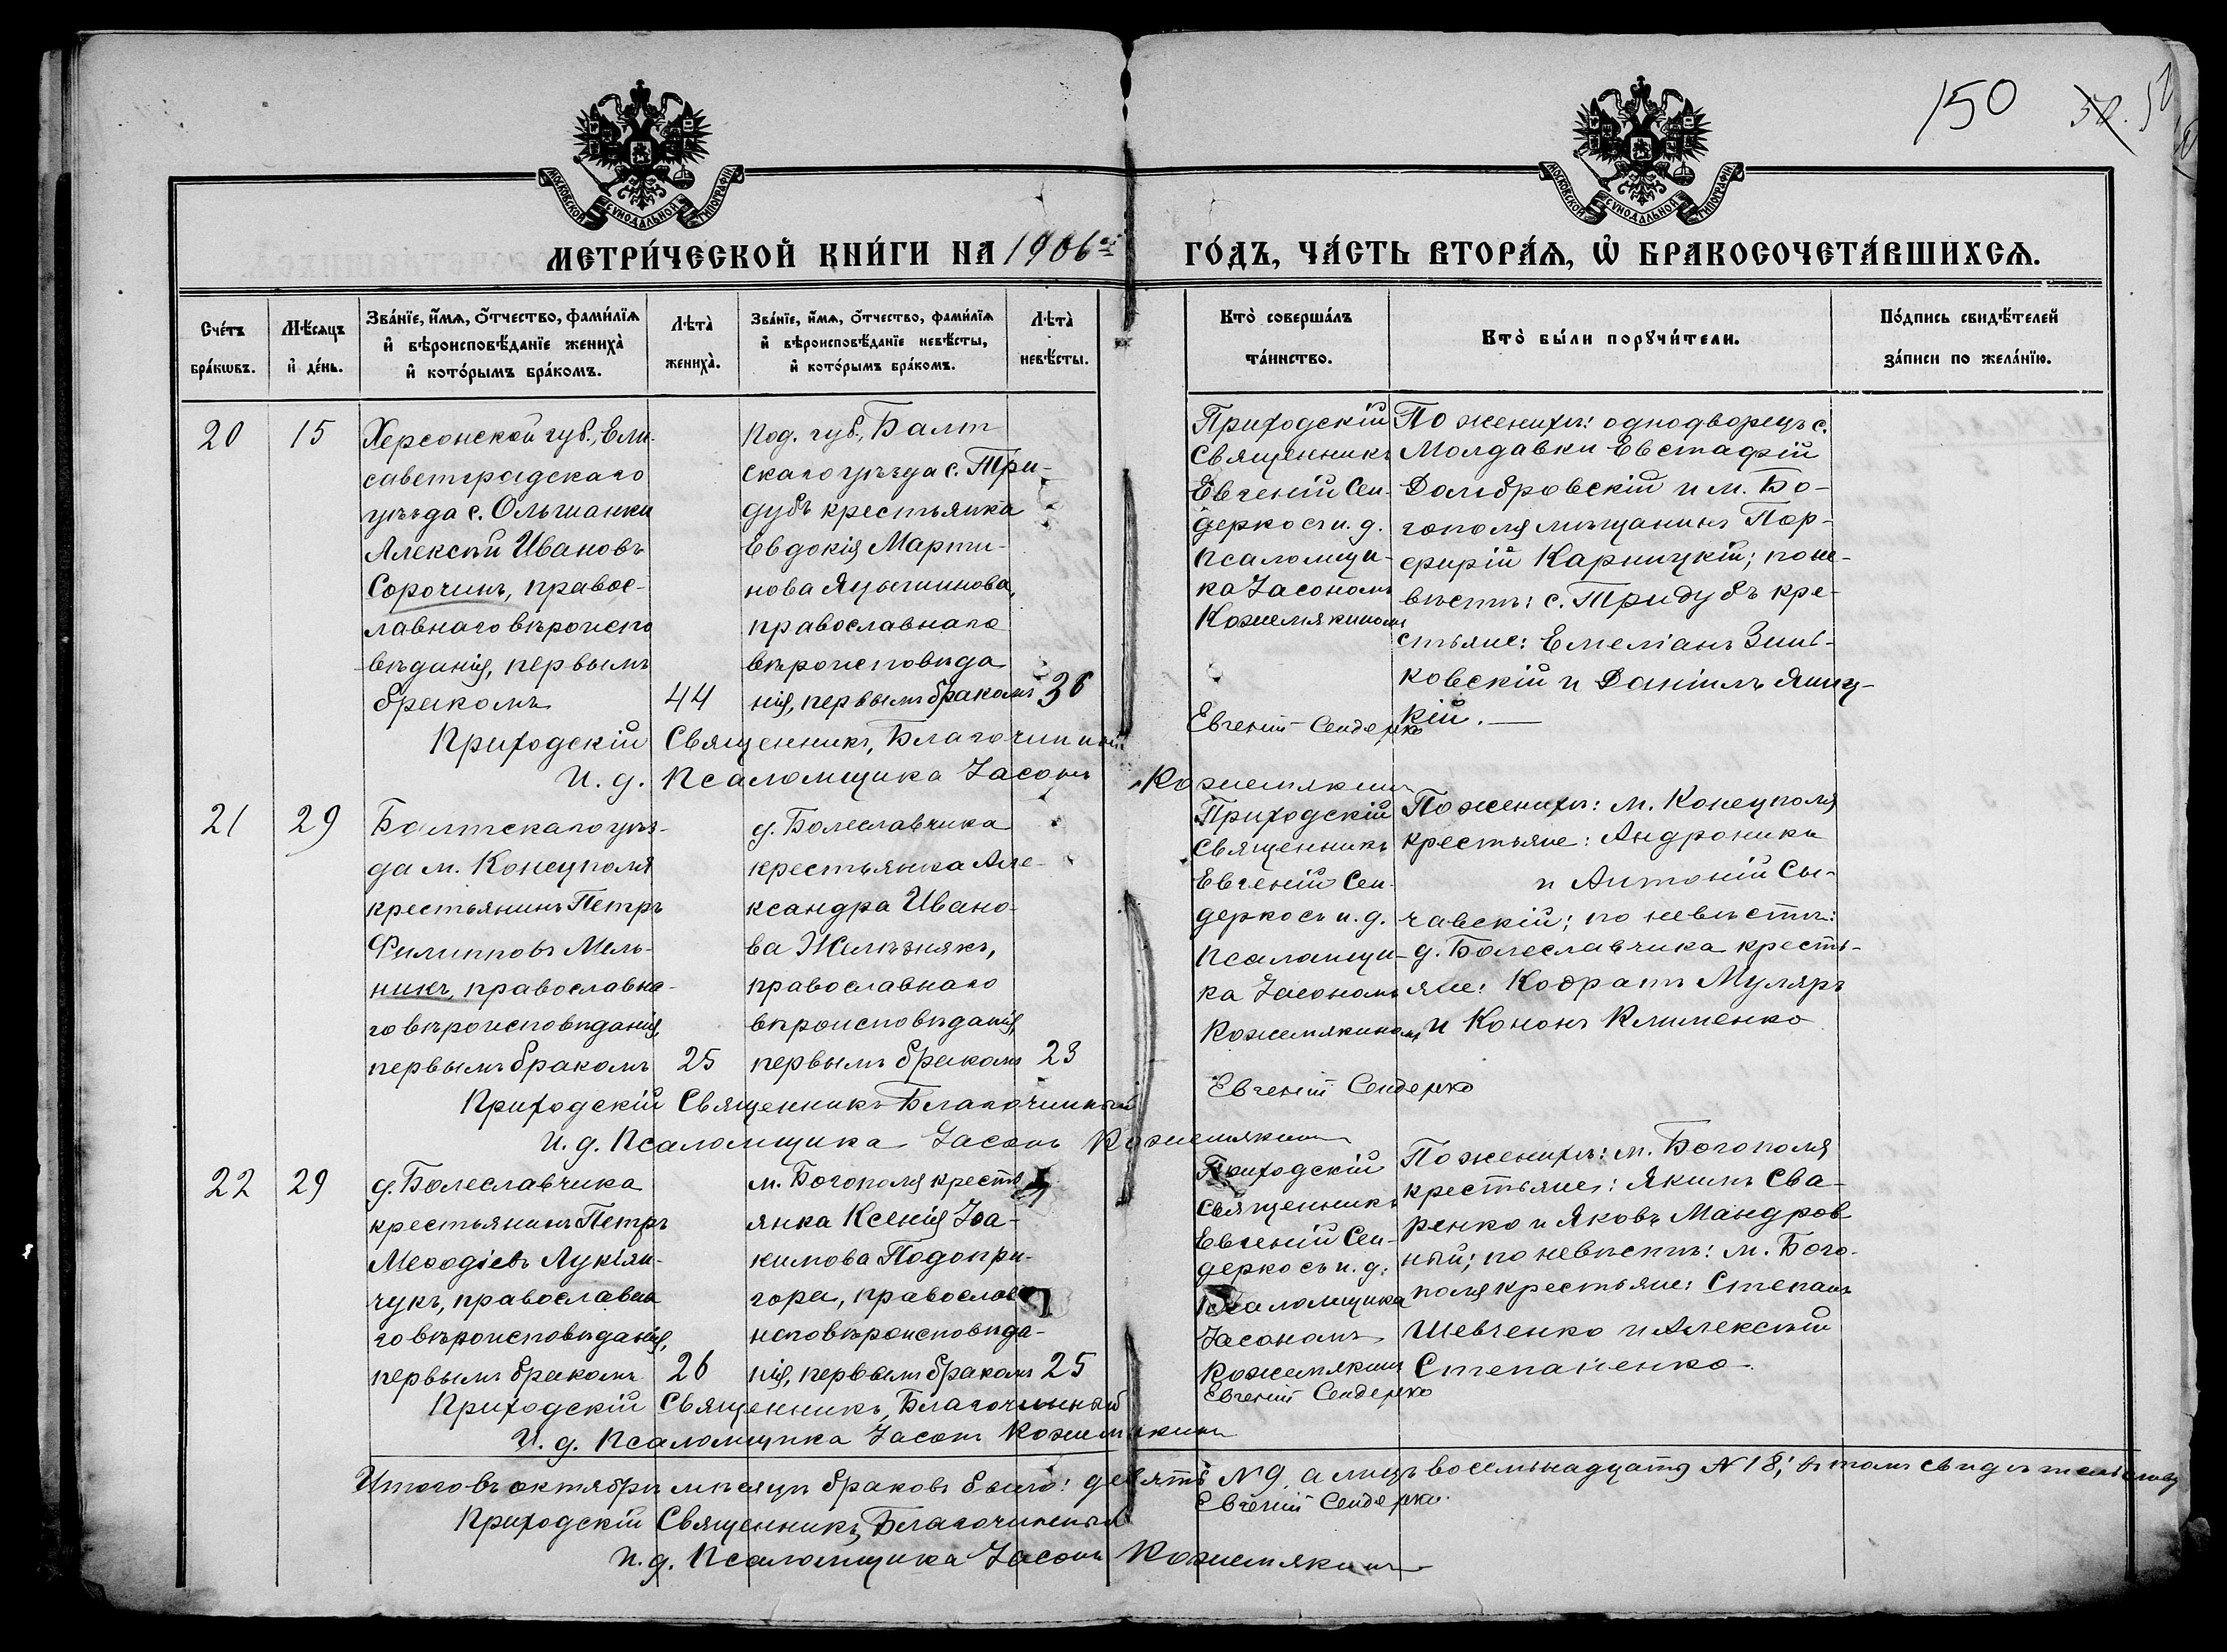 150
МОСКОВСКОЙ СѴНОДАЛЬНОЙ ТИПОГРАФІИ
МОСКОВСКОЙ СѴНОДАЛЬНОЙ ТИПОГРАФІИ
МЕТРИ́ЧЕСКОЙ КНИ́ГИ НА 1906 й
ГО́ДЪ, ЧА́СТЬ ВТОРА́Ѧ, Ѽ БРАКОСОЧЕТА́ВШИХСѦ.
Сче́тъ бра́кѡвъ.
Мѣ́сяцъ и҆ де́нь.
Зва́нїе, и҆́мѧ, ѻ҆́тчество, фами́лїѧ
и҆ вѣроисповѣ́данїе жениха̀
и҆ кото́рымъ бра́комъ.
Лѣта̀ жениха̀.
Зва́нїе, и҆́мѧ, ѻ҆́тчество, фами́лїѧ
и҆ вѣроисповѣ́данїе невѣ́сты,
и҆ кото́рымъ бра́комъ.
Лѣта̀ невѣ́сты.
Кто̀ соверша́лъ
та́инство.
Кто̀ бы́ли порꙋчи́тели.
По́дпись свидѣ́телей
за́писи по жела́нїю.
20
15
Херсонской губ., Ели-
саветградскаго
уѣзда с. Ольшанки
Алексѣй Ивановъ
Сорочинъ, правос-
лавнаго вѣроиспо
вѣданія, первымъ
бракомъ
44
Под. губ., Балт
скаго уѣзда с. Три-
дубъ крестьянка
Евдокія Марти-
нова Яцышинова,
православнаго
вѣроисповѣда
нія, первымъ бракомъ
36
Приходскій
Священникъ
Евгеній Сен-
дерко съ и. д.
псаломщи-
ка Іасономъ
Кожемякиномъ
По женихѣ: однодворецъ с.
Молдавки Евстафій
Домбровскій и м. Бо-
гополя мѣщанинъ Пор-
фирій Карницкій; по не-
вѣстѣ: с. Тридубъ кре-
стьяне: Емеліанъ Зинь-
ковскій и Даніилъ Яниц-
кій.
Приходскій Священникъ, Благочинный Евгеній Сендерко
И. д. Псаломщика Іасонъ Кожемякинъ
21
29
Балтскаго уѣз-
да м. Конецполя
крестьянинъ Петръ
Филипповъ Мель-
никъ, православна-
го вѣроисповѣданія,
первымъ бракомъ
25
д. Болеславчика
крестьянка Але-
ксандра Ивано-
ва Желѣзнякъ,
православнаго
вѣроисповѣданія,
первымъ бракомъ
23
Приходскій
Священникъ
Евгеній Сен-
дерко съ и. д.
псаломщи-
ка Іасономъ
Кожемякиномъ
По женихѣ: м. Конецполя
крестьяне: Андроникъ
и Антоній Сы-
чавскій; по невѣстѣ:
д. Болеславчика кресть-
яне: Кодратъ Муляръ
и Кононъ Клименко
Приходскій Священникъ Благочинный Евгеній Сендерко
И. д. Псаломщика Іасонъ Кожемякинъ
22
29
д. Болеславчика
крестьянинъ Петръ
Меѳодіевъ Лукіян-
чукъ, православна
го вѣроисповѣданія,
первымъ бракомъ
26
м. Богополя кресть
янка Ксенія Іоа-
кимова Подопри-
гора, православ
наго вѣроисповѣда-
нія, первымъ бракомъ
25
Приходскій
Священникъ
Евгеній Сен-
дерко съ и. д.
Псаломщика
Іасономъ
Кожемякинъ
По женихѣ: м. Богополя
крестьяне: Якимъ Сва-
ренко и Яковъ Мандров
ный; по невѣстѣ: м. Бого-
поля крестьяне: Степанъ
Шевченко и Алексѣй
Степаненко.
Приходскій Священникъ, Благочинный Евгеній Сендерко
И. д. Псаломщика Іасонъ Кожемякинъ
Итого въ октябрѣ мѣсяцѣ браковъ было: девять № 9, а лицъ восемьнадцать № 18; въ томъ свидѣтельствуемъ
Приходскій Священникъ, Благочинный Евгеній Сендерко.
и. д. Псаломщика Іасонъ Кожемякинъ